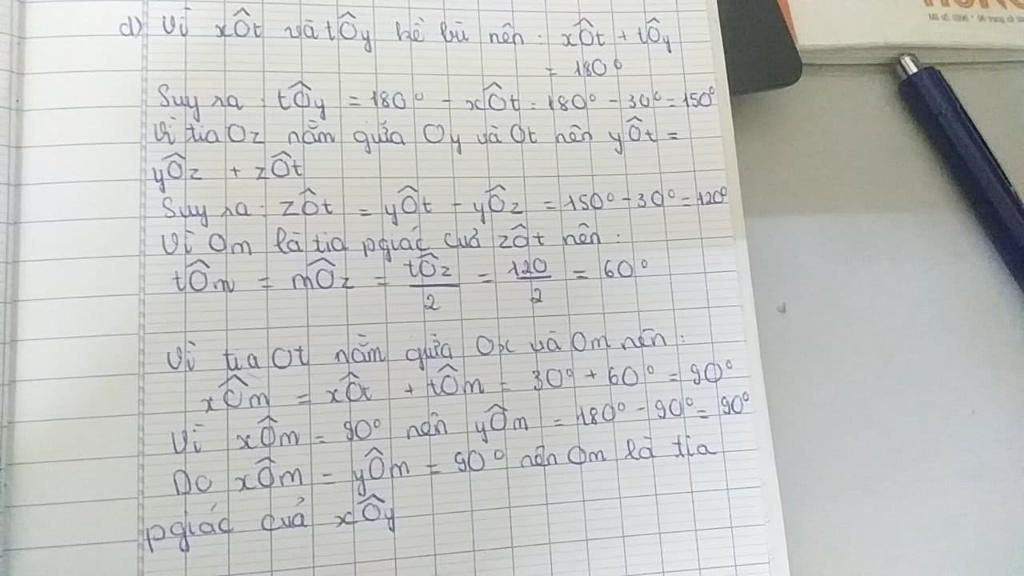 d) Vì xÔt và tÔy kề bù nên: xÔt + tÔy
= 180°
Suy ra: tÔy = 180° - xÔt = 180° - 30° = 150°
Vì tia Oz nằm giữa Oy và Ot nên yÔt =
yÔz + zÔt
Suy ra: zÔt = yÔt - yÔz = 150° - 30° = 120°
Vì Om là tia pgiác của zÔt nên:
tÔm = mÔz = tÔz/2 = 120/2 = 60°
Vì tia Ot nằm giữa Ox và Om nên:
xÔm = xÔt + tÔm = 30° + 60° = 90°
Vì xÔm = 90° nên yÔm = 180° - 90° = 90°
Do xÔm = yÔm = 90° nên Om là tia
pgiác của xÔy